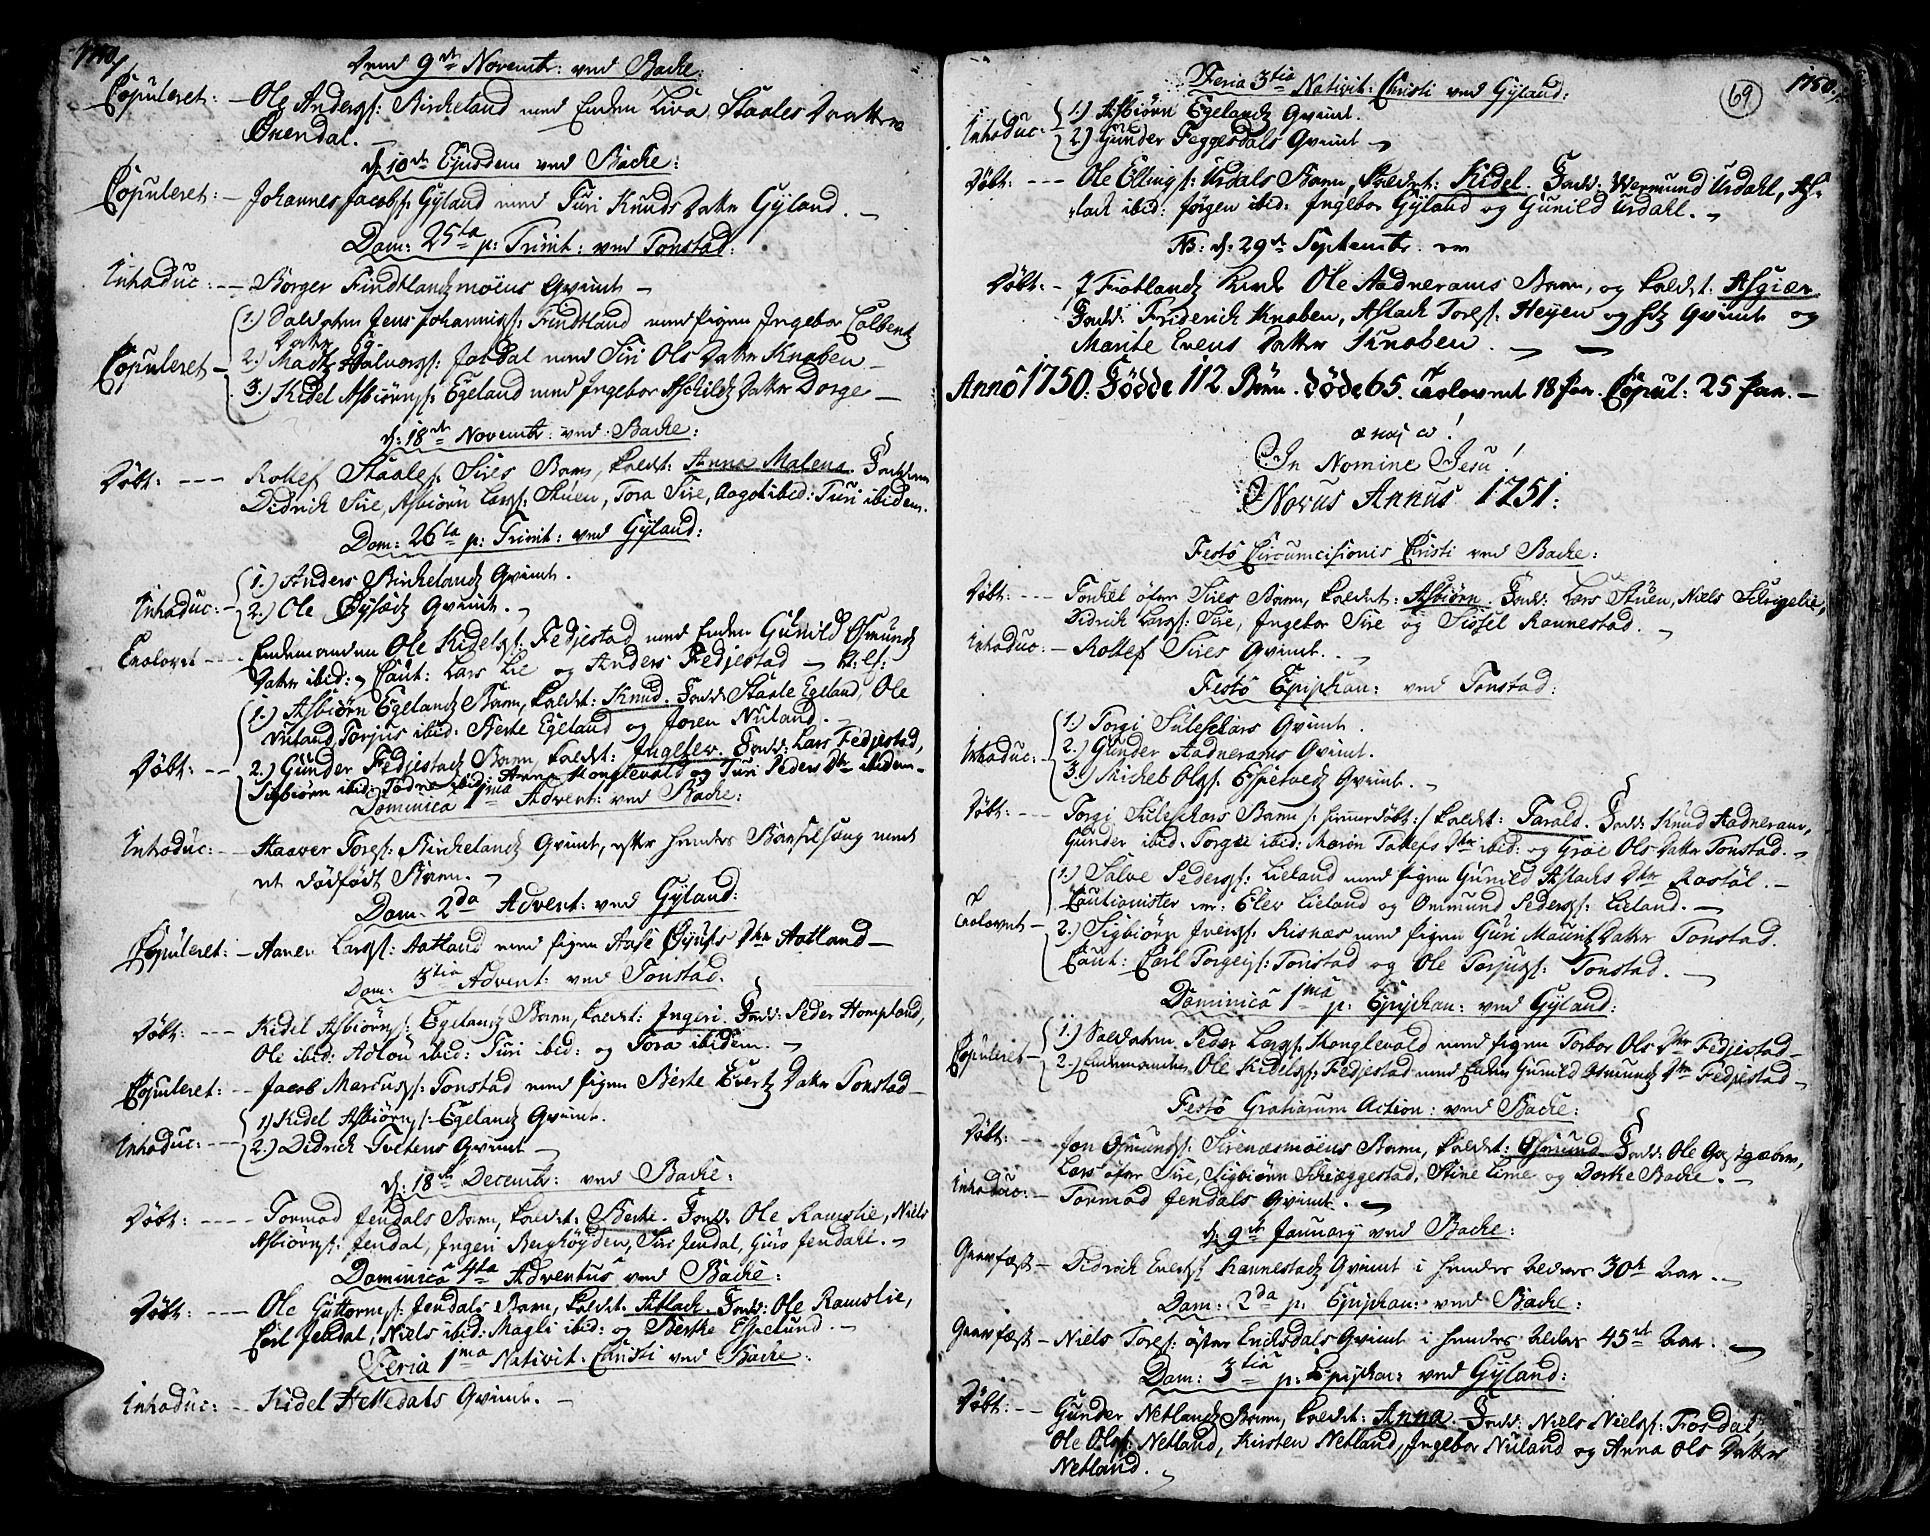 1750.
Dend 9de Novembr: ved Backe:
Copuleret: - Ole Anders: Birckeland med Enken Liva Staales Datter
Øvendal. -
d: 10de Ejusdem ved Backe:
Copuleret: - Johannes Jacobs: Gÿland med Turi Knuds Datter Gÿland. -
Dom: 25ta p: Trinit: ved Tonstad:
Introduc: - Børger Findtlandsmoens Qvinde -
1.) Soldaten Jens Johannis: Findtland med Pigen Ingebor
Datter
Copuleret - 2.) Mads Halvors: Josdal med Siri Ols Datter Knaben -
3.) Kidel Asbiørns: Egeland med Ingebor Aschilds Datter Dorge -
d: 18de Novembr: ved Backe:
Døbt: --- Rollef Staales: Sires Barn, kaldet: Anna Malena. Fadd:
Didrich Sire, Asbiørn Lars: Stuen, Tora Sire, Aagot ibid: Turi ibidem.
Dom: 26ta p: Trinit: ved Gÿland:
1.) Anders Birckelands Qvinde.
Introduc: - 2.) Ole Qvinde. -
Trolovet --- Enkemanden Ole Kidels: Fedjestad med Enken Gunild Osmunds
Datter ibid: Caut: Lars Lie og Anders Fedjestad -
1.) Asbiørn Egelands Barn, kaldet: Knud. Fadd: Staale Egeland, Ole
Nuland, Torjus ibid: Berte Egeland og Joren Nuland. -
Døbt: -- 2.) Gunder Fedjestads Barn, kaldet: Fadd: Lars Fedjestad,
Sigbiørn ibid: Anna Konglevold og Turi Peders Dtr ibidem -
Dominica 1ma Advent: ved Backe:
Introduc: - Haaver Tores: Birckelands Qvinde, efter hendes Barselseng med
et dødfødt Barn. -
Dom. 2da Advent: ved Gÿland:
Copuleret: - Aanen Lars: Aatland med Pigen Aase Dtr Aatland -
Dom: 3tia Advent: ved Tonstad.
Døbt: --- Kidel Asbiørns: Egelands Barn, kaldet: Ingeri. Fadd: Peder Hompland,
Ole ibid: Adlou ibid: Turi ibid: og Tora ibidem. -
Copuleret: - Jacob Marcus: Tonstad med Pigen Berte Evertz Datter Tonstad -
1) Kidel Asbiørns: Egelands Qvinde.
Introduc: --- 2.) Didrich Tvetens Qvinde -
d: 18de Decembr: ved Backe:
Døbt: ---- Tormod Jendals Barn, kaldet: Berte. Fadd: Ole Ramslie, Niels
Asbiørns: Jendal, Ingeri Berghøÿden, Siri Jendal, Guro Jendahl. -
Dominica 4ta Adventus ved Backe:
Døbt: --- Ole Guttorms: Jendals Barn, kaldet: Atlack. Fadd: Ole Ramslie,
Carl Jendal, Niels ibid: Magli ibid: og Berte Espelund. -
Feria 1ma Nativit: Christi ved Backe:
Introduc: - Kidel Helledals Qvinde. -
69
1750.
Feria 3tia Nativit: Christi ved Gÿland:
1.) Asbiørn Egelands Qvinde.
Introduc: - 2.) Gunder Feggesdals Qvinde -
Døbt: --- Ole Ellings: Urdals Barn, kaldet: Kidel. Fadd: Wermund Urdahl,
ibid: Jørgen ibid: Ingebor Gÿland og Gunild Urdahl. -
NB: d: 29de Septembr.
Døbt: - I Fiotlands Kirke Ole Aadnerams Barn, og kaldet: Asgier.
Fadd: Friderich Knaben, Atlack Tores: Heÿen og hs Qvinde og
Marite Evens Datter Knaben. -
Anno 1750. Fødde 112 Børn. døde 65. Trolovet 18 Par. Copul: 25 Par. -
In Nomine Jesu!
Novus Annus 1751:
Festo Circumcisionis Christi ved Backe:
Døbt: --- Tonkel øfre Sires Barn, kaldet: Asbiørn. Fadd: Lars Stuen, Niels Selvigelie,
Didrich Lars: Sire, Ingebor Sire og Sissel Rannestad. -
Introduc: - Rollef Sires Qvinde. -
Festo Epiphan: ved Tonstad:
1.) Torgi Suleschars Qvinde.
Introduc: - 2.) Gunder Aadnerams Qvinde.
3.) Michel Ols: Espetveds Qvinde. -
Døbt: --- Torgi Suleschars Barn /: hiemmedøbt :/ kaldet: Tarald. Fadd: Knud Aadneram,
Gunder ibid. Torgie ibid: Maron Tollefs Dtr ibid: og Groe Ols Datter Tonstad. -
1.) Salve Peders: Lieland med Pigen Gunild Atlacks Dtr Rostøl. -
Cautionister er: Elev Lieland og Ommund Peders: Lieland. -
Trolovet - 2.) Sigbiørn Ivers: Risnæs med Pigen Guri Mauritz Datter Tonstad.
Caut: Carl Torgeis: Tonstad og Ole Torjus: Tonstad. -
Dominica 1ma p: Epiphan: ved Gÿland:
1.) Soldaten Peder Lars: Konglevold med Pigen Torbor Ols Dtr Fedjestad -
Copuleret - 2.) Enkemanden Ole Kidels: Fedjestad med Enken Gunild Osmunds Dtr Fedjestad -
Festo Gratiarum Action: ved Backe:
Døbt: --- Jon Osmunds: Sirenæsmoens Barn, kaldet: Osmund. Fadd: Ole
Lars øfre Sire, Sigbiørn Schreggestad, Stine Lerne og Dorte Backe. -
Introduc: - Tormod Jendals Qvinde. -
d: 9de Januarÿ ved Backe:
Gravfæst - Didrich Evers: Rannestads Qvinde i hendes Alders 30te Aar. -
Dom: 2da p. Epiphan: ved Backe:
Gravfæst - Niels Tores: øfre Eschedals Qvinde i hendes Alders 45de Aar. -
Dom: 3tia p: Epiphan: ved Gÿland:
Døbt: -- Gunder Netlands Barn, kaldet: Anna. Fadd: Niels Niels: Frosdal,
Ole Ols: Netland, Kirsten Netland, Ingebor Nuland og Anna Ols Datter
Netland. -